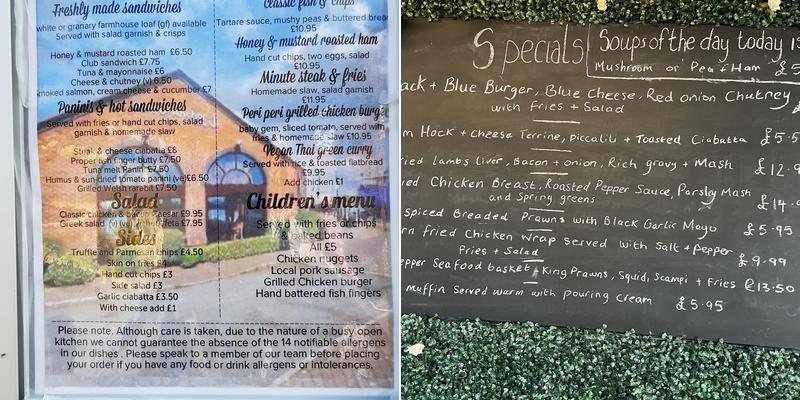 Freshly made sandwiches
white or granary farmhouse loaf (gf) available
Served with salad garnish & crisps
Honey & mustard roasted ham £6.50
Club sandwich £7.75
Tuna & mayonnaise £6
Cheese & chutney (v) 6.50
smoked salmon, cream cheese & cucumber £7
Paninis & hot sandwiches
Served with fries or hand cut chips, salad
garnish & homemade slaw
Steak & cheese ciabatta £8
Proper fish finger butty £7.50
Tuna melt Panini £7.50
Humus & sun-dried tomato panini (ve)£6.50
Grilled Welsh rarebit £7.50
Salad
Classic chicken & bacon caesar £9.95
Greek salad (v) (ve) feta £7.95
Sides
Truffle and Parmesan chips £4.50
Skin on fries £4
Hand cut chips £3
Side salad £3
Garlic ciabatta £3.50
With cheese add £1
Classic fish & chips
Tartare sauce, mushy peas & buttered bread
£10.95
Honey & mustard roasted ham
Hand cut chips, two eggs, salad
£10.95
Minute steak & fries
Homemade slaw, salad garnish
£11.95
Peri peri grilled chicken burge
baby gem, sliced tomato, served with
fries & homemade slaw £10.95
Vegan Thai green curry
Served with rice & toasted flatbread
£9.95
Add chicken £1
Children's menu
Served with fries or chips
& baked beans
All £5
Chicken nuggets
Local pork sausage
Grilled Chicken burger
Hand battered fish fingers
Please note. Although care is taken, due to the nature of a busy open
kitchen we cannot guarantee the absence of the 14 notifiable allergens
in our dishes . Please speak to a member of our team before placing
your order if you have any food or drink allergens or intolerances.
Specials
Soups of the day today is
Mushroom or Pea + Ham £5
ack + Blue Burger, Blue Cheese, Red onion Chutney
with Fries + Salad £
m Hock + cheese Terrine, piccalili + Toasted Ciabatta £5.5
ied lambs liver, Bacon + onion, Rich gravy + Mash £12.9
ied Chicken Breast, Roasted Pepper Sauce, Parsley Mash
and Spring greens £14.
spiced Breaded Prawns with Black Garlic Mayo £5.95
rn Fried Chicken Wrap served with Salt + pepper
Fries + Salad £9.99
epper Seafood basket, King Prawns, Squid, Scampi + Fries £13.50
muffin Served warm with pouring cream £5.95